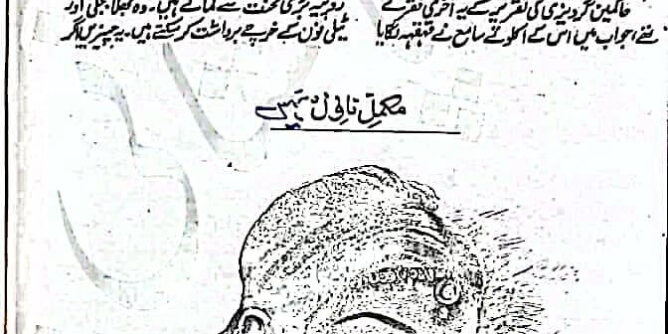 گردیزی کی تقریر کے یہ آخری فقرے
تھے، جواب میں اس کے اکلوتے سامع نے قہقہہ لگایا
بڑی محنت سے کماتے ہیں۔ وہ بھلا بجلی اور
ٹیلی فون کے خرچے برداشت کر سکتے ہیں۔ یہ چیزیں اگر
مکمل ناول